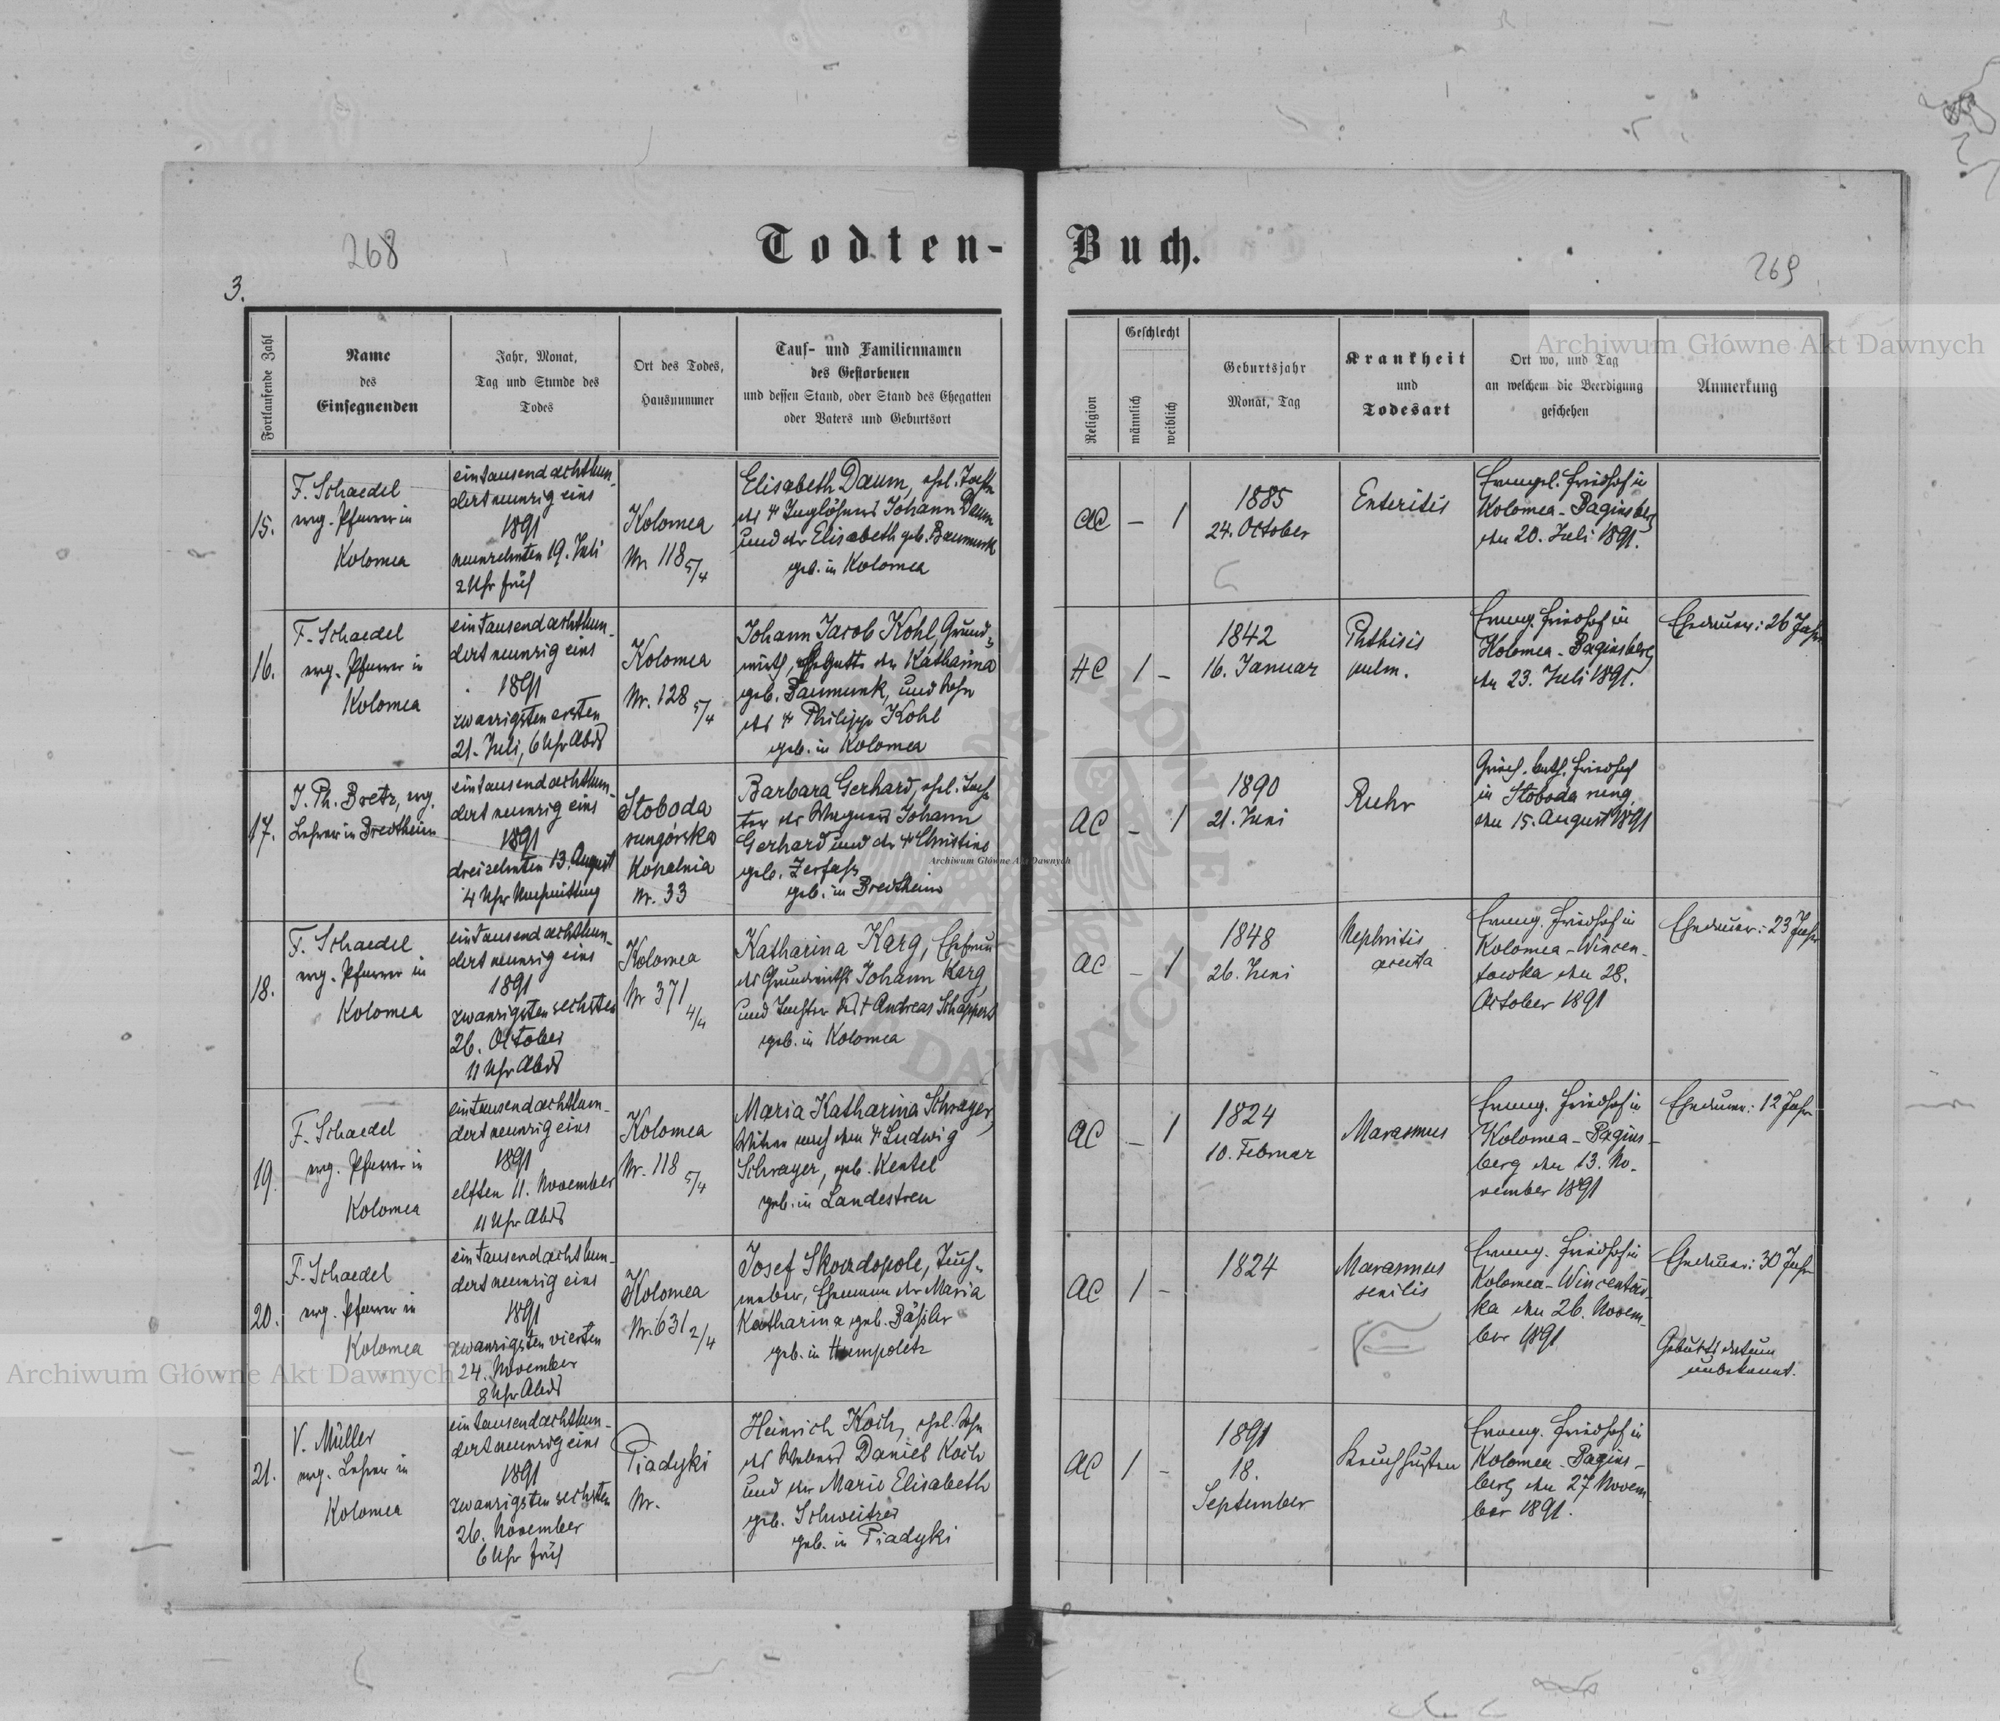 268
Todten-Buch.
269
3.
Archiwum Główne Akt Dawnych
Fortlaufende Zahl
Name
des
Einsegnenden
Jahr, Monat,
Tag und Stunde des
Todes
Ort des Todes,
Hausnummer
Tauf- und Familiennamen
des Gestorbenen
und dessen Stand, oder Stand des Ehegatten
oder Vaters und Geburtsort
Religion
Geschlecht
männlich
weiblich
Geburtsjahr
Monat, Tag
Krankheit
und
Todesart
Ort wo, und Tag
an welchem die Beerdigung
geschehen
Anmerkung
15.
F. Schaedel
evg. Pfarrer in
Kolomea
eintausendachthun-
dertneunzig eins
1891
neunzehnten 19. Juli
2 Uhr früh
Kolomea
Nr 118 5/4
Elisabeth Daum, ehel. Tocht
des + Taglöhners Johann Daum
und der Elisabeth geb. Baumunk
geb. in Kolomea
AC
– 1
1885
24. October
Enteritis
Evangel. Friedhof in
Kolomea-Baginsberg
den 20. Juli 1891.
16.
F. Schaedel
evg. Pfarrer in
Kolomea
eintausendachthun-
dertneunzig eins
1891
zwanzigsten ersten
21. Juli, 6 Uhr Abds
Kolomea
Nr. 128 5/4
Johann Jacob Kohl, Grund-
wirth, Ehegatte der Katharina
geb. Baumunk, und Sohn
des + Philipp Kohl
geb. in Kolomea
HC
1 –
1842
16. Januar
Phthisis
pulm.
Evang. Friedhof in
Kolomea-Baginsberg
den 23. Juli 1891.
Ehedauer: 26 Jahr
17.
J. Ph. Bretz, evg.
Lehrer in Bredtheim
eintausendachthun-
dertneunzig eins
1891
dreizehnten 13. August
4 Uhr Nachmittag
Sloboda
rungórska
Kopalnia
Nr. 33
Barbara Gerhard, ehel. Toch
ter des Wagners Johann
Gerhard und der + Christine
geb. Zerfass
geb. in Bredtheim
AC
– 1
1890
21. Juni
Ruhr
Griech. kath. Friedhof
in Sloboda rung.
den 15. August 1891
Archiwum Główne Akt Dawnych
18.
F. Schaedel
evg. Pfarrer in
Kolomea
eintausendachthun-
dertneunzig eins
1891
zwanzigsten sechsten
26. October
11 Uhr Abds
Kolomea
Nr 371 4/4
Katharina Karg, Ehefrau
des Grundwirths Johann Karg,
und Tochter des + Andreas Schappert
geb. in Kolomea
AC
– 1
1848
26. Juni
Nephritis
acuta
Evang. Friedhof in
Kolomea-Wincen-
towka den 28.
October 1891
Ehedauer: 23 Jahr
19.
F. Schaedel
evg. Pfarrer in
Kolomea
eintausendachthun-
dertneunzig eins
1891
elften 11. November
11 Uhr Abds
Kolomea
Nr. 118 5/4
Maria Katharina Schrayer,
Witwe nach dem + Ludwig
Schrayer, geb. Kentel
geb. in Landestreu
AC
– 1
1824
10. Februar
Marasmus
Evang. Friedhof in
Kolomea-Bagins-
berg den 13. No-
vember 1891
Ehedauer: 12 Jahr
20.
F. Schaedel
evg. Pfarrer in
Kolomea
eintausendachthun-
dertneunzig eins
1891
zwanzigsten vierten
24. November
8 Uhr Abds
Kolomea
Nr. 631 2/4
Josef Skozdopole, Tuch-
weber, Ehemann der Maria
Katharina geb. Bäßler
geb. in Humpoletz
AC
1 –
1824
Marasmus
senilis
Evang. Friedhof in
Kolomea-Wincentów-
ka den 26. Novem-
ber 1891
Ehedauer: 30 Jahr
Geburtsdatum
unbekannt.
Archiwum Główne Akt Dawnych
21.
V. Müller
evg. Lehrer in
Kolomea
eintausendachthun-
dertneunzig eins
1891
zwanzigsten sechsten
26. November
6 Uhr früh
Piadyki
Nr.
Heinrich Koch, ehel. Sohn
des Webers Daniel Koch
und der Marie Elisabeth
geb. Schweitzer
geb. in Piadyki
AC
1 –
1891
18.
September
Keuchhusten
Evang. Friedhof in
Kolomea-Bagins-
berg den 27 Novem-
ber 1891.